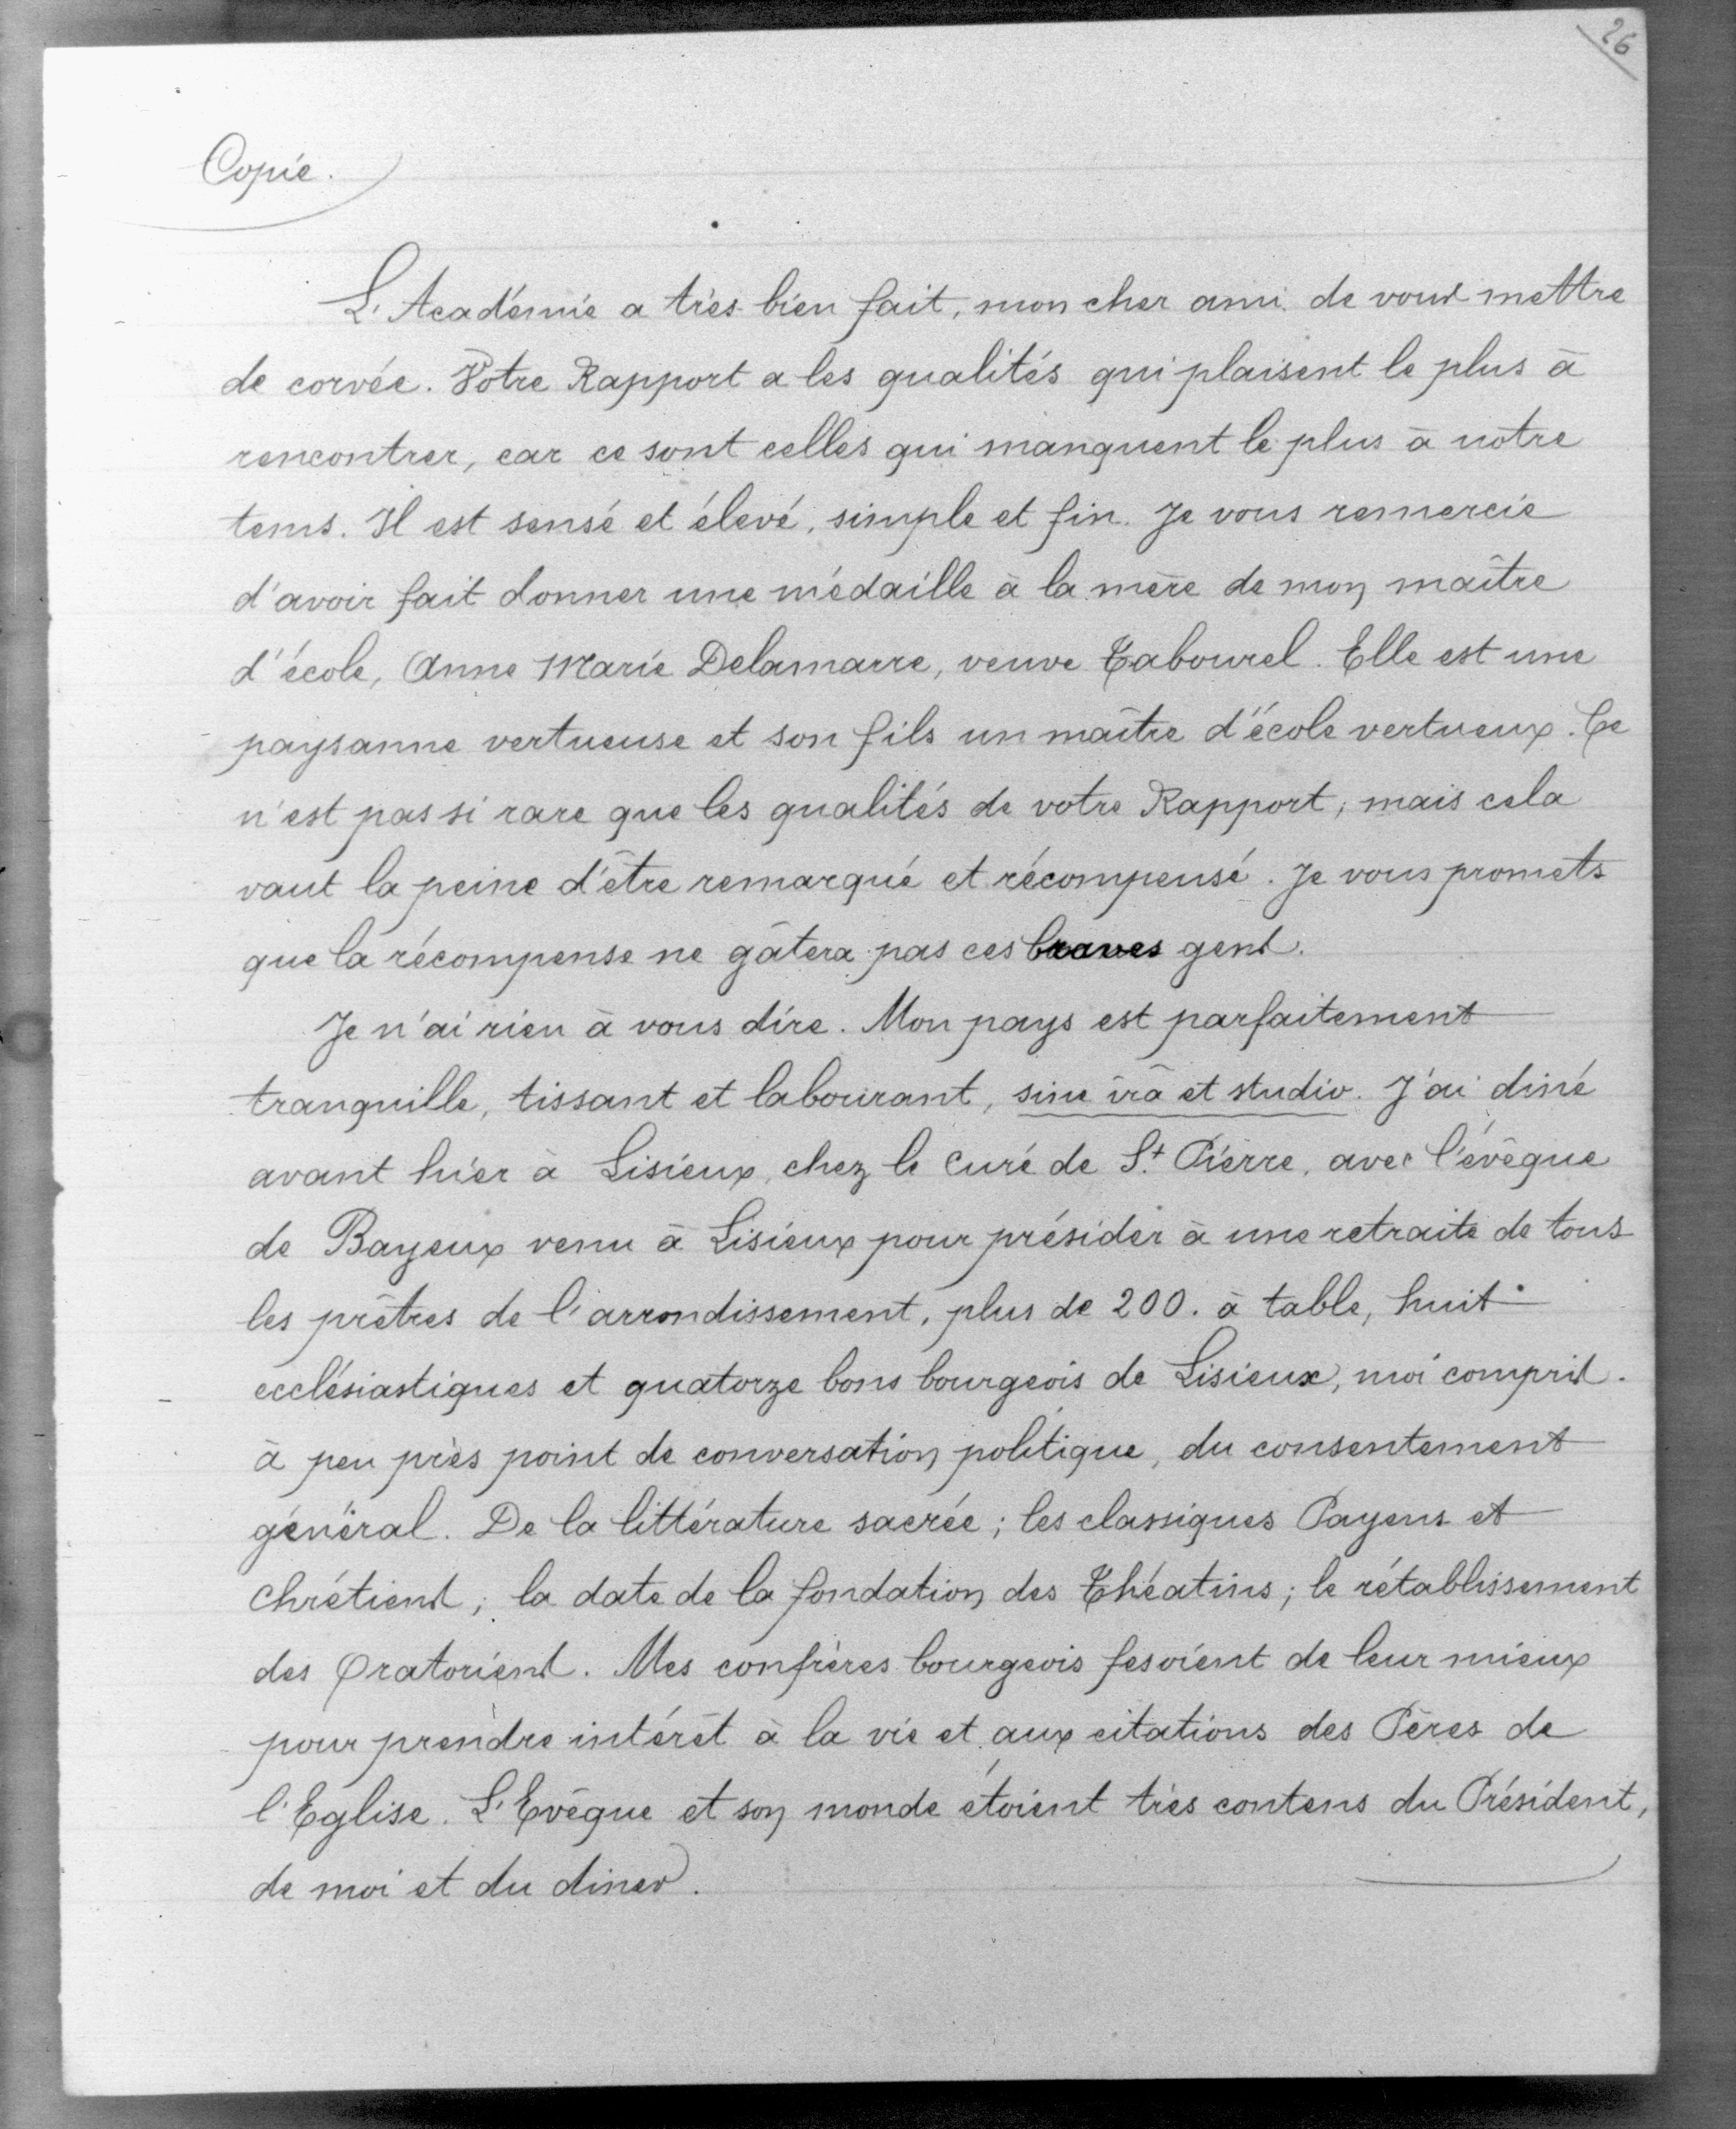 26
Copie.
L'Académie a très bien fait, mon cher ami de vous mettre
de corvée. Votre Rapport a les qualités qui plaisent le plus à
rencontrer, car ce sont celles qui manquent le plus à notre
tems. Il est sensé et élevé, simple et fin. Je vous remercie
d'avoir fait donner une médaille à la mère de mon maître
d'école, Anne Marie Delamarre, veuve Tabourel. Elle est une
paysanne vertueuse et son fils un maître d'école vertueux. Ce
n'est pas si rare que les qualités de votre Rapport; mais cela
vaut la peine d'être remarqué et récompensé. Je vous promets
que la récompense ne gâtera pas ces braves gens.
Je n'ai rien à vous dire. Mon pays est parfaitement
tranquille, tissant et labourant, sine irâ et studio. J'ai diné
avant hier à Lisieux, chez le curé de St. Pierre, avec l'évêque
de Bayeux venu à Lisieux pour présider à une retraite de tous
les prêtres de l'arrondissement, plus de 200. à table, huit
ecclésiastiques et quatorze bons bourgeois de Lisieux, moi compris.
à peu près point de conversation politique, du consentement
général. De la littérature sacrée; les classiques Payens et
Chrétiens; la date de la fondation des Théatins; le rétablissement
des Oratoriens. Mes confrères bourgeois fesoient de leur mieux
pour prendre intérêt à la vie et aux citations des Pères de
l'Eglise. L'Evêque et son monde étoient très contens du Président,
de moi et du diner.